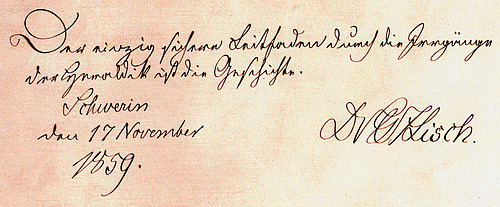 Der einzig sichere Leitfaden durch die Irrgänge
der Heraldik ist die Geschichte.
Schwerin
den 17 November
1859.
Dr GCF Lisch.